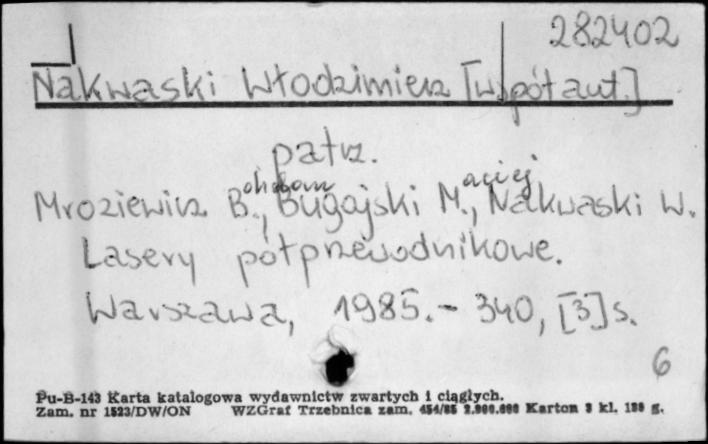 282402
Nakwaski Włodzimierz [współaut.]
patrz.
Mroziewicz B.ohdan, Bugajski M.aciej, Nakwaski W.
Lasery półprzewodnikowe.
Warszawa, 1985. - 340, [3] s.
6
Pu-B-143 Karta katalogowa wydawnictw zwartych i ciągłych.
Zam. nr 1523/DW/ON WZGraf Trzebnica zam. 454/85 2.000.000 Karton 3 kl. 180 g.